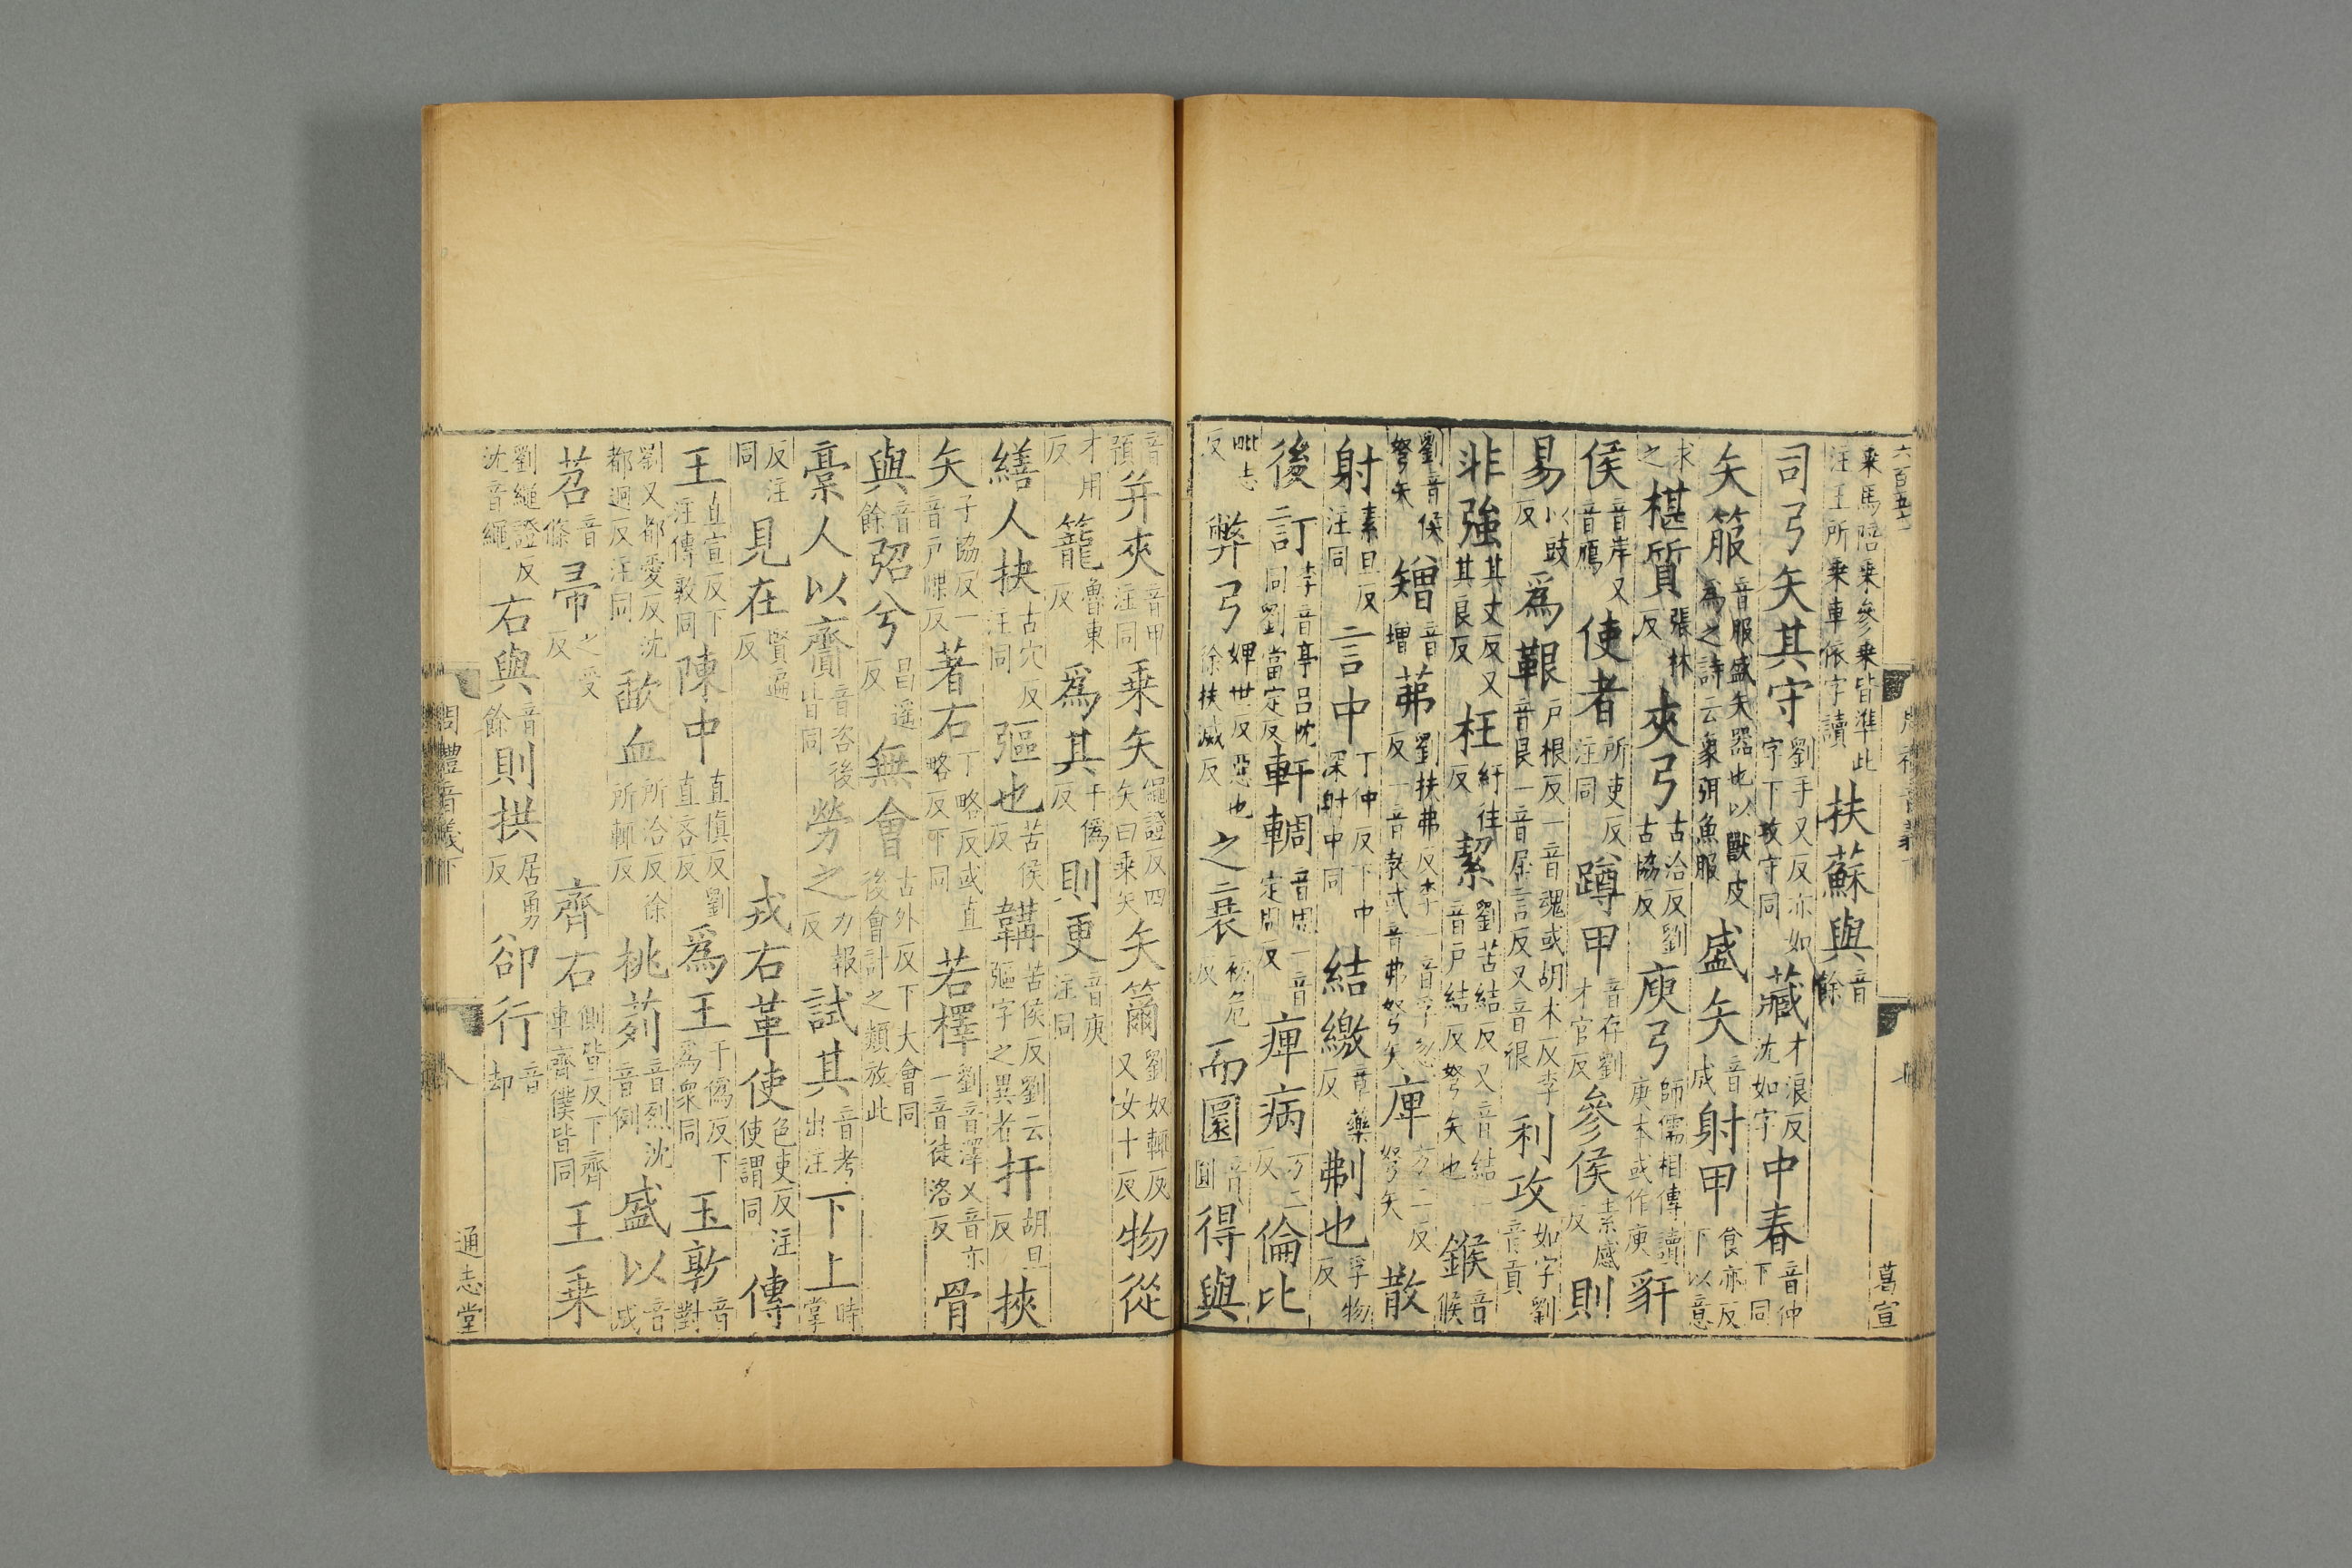 六百五七
周禮音義下
葛宣
乗馬陪乗參乗皆準此注王所乗車依字讀扶蘇與音餘
司弓矢其守劉手又反亦如字下攻守同藏才浪反沈如字中春音仲下同
矢箙音服盛矢器也以獸皮爲之詩云象弭魚服盛矢音成射甲食亦反下以意
求之椹質張林反夾弓古洽反劉古協反庾弓師儒相傳讀庾本或作庾豻
侯音岸又音鴈使者所吏反注同蹲甲音存劉才官反參侯素感反則
易以豉反爲艱戸根反一音魂或胡本反李音艮一音屈言反又音很利攻如字劉音貢
非強其丈反又其良反枉紆往反絜劉苦結反又音結一音戸結反弩矢也鍭音候
劉音侯弩矢矰音增茀劉扶弗反李一音孚忽反一音勃或音弗弩矢庳方二反弩矢散
射素旦反注同言中丁仲反下中深射中同結繳章藥反刜也孚物反
後訂李音亭呂忱同劉當定反軒輖音周一音定周反庳病方二反倫比
毗志反弊弓婢世反惡也徐扶滅反之衰初危反而圜音圓得與
音預并夾音甲注同乗矢繩證反四矢曰乗矢矢籋劉奴輒反又女十反物從
才用反籠魯東反爲其于僞反則更音庚注同
繕人抉古穴反注同彄也苦侯反韝苦侯反劉云彄字之異者扞胡旦反挾
矢子協反一音戸牒反著右丁略反或直略反下同若檡劉音澤又音亦一音徒洛反骨
與音餘弨兮昌遥反無會古外反下大會同後會計之類放此
槀人以齎音咨後皆同勞之力報反試其音考出注下上時掌
反注同見在賢遍反戎右革使色吏反注使謂同傳
王直宣反下注傳敦同陳中直愼反劉直吝反爲王于僞反下爲衆同玉敦音對
劉又都愛反沈都迥反注同歃血所洽反徐所輒反桃茢音烈沈音例盛以音成
苕音條帚之受反齊右側皆反下齊車齊僕皆同王乗
劉繩證反沈音繩右與音餘則拱居勇反卻行音却
周禮音義下
八
通志堂